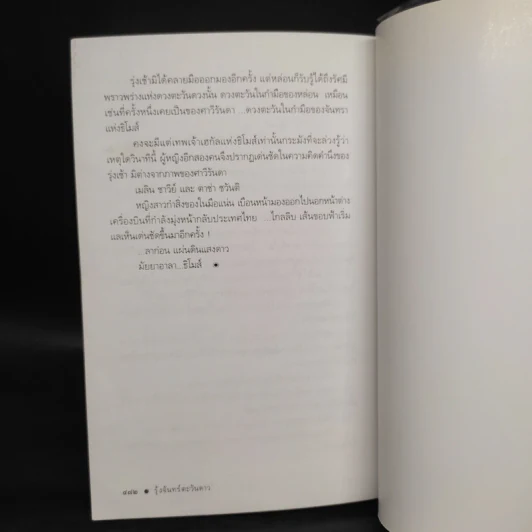 รุ่งเช้ามิได้คลายมือออกมองอีกครั้ง แต่หล่อนก็รับรู้ได้ถึงรัศมี
พราวพร่างแห่งดวงตะวันดวงนั้น ดวงตะวันในกำมือของหล่อน เหมือน
เช่นที่ครั้งหนึ่งเคยเป็นของศาวีรันดา ...ดวงตะวันในกำมือของจันทรา
แห่งธิโมส์
คงจะมีแต่เทพเจ้าเฮกัลแห่งธิโมส์เท่านั้นกระมังที่จะล่วงรู้ว่า
เหตุใดวินาทีนี้ ผู้หญิงอีกสองคนจึงปรากฏเด่นชัดในความคิดคำนึงของ
รุ่งเช้า มิต่างจากภาพของศาวีรันดา
เมลิน ซาวีย์ และ ตาซ่า ชวันติ
หญิงสาวกำสิ่งของในมือแน่น เบือนหน้ามองออกไปนอกหน้าต่าง
เครื่องบินที่กำลังมุ่งหน้ากลับประเทศไทย ...ไกลลิบ เส้นขอบฟ้าเริ่ม
แลเห็นเด่นชัดขึ้นมาอีกครั้ง !
...ลาก่อน แผ่นดินแสงดาว
มัยยาอาลา...ธิโมส์
๔๘๒ ● รุ้งจันทร์ตะวันดาว